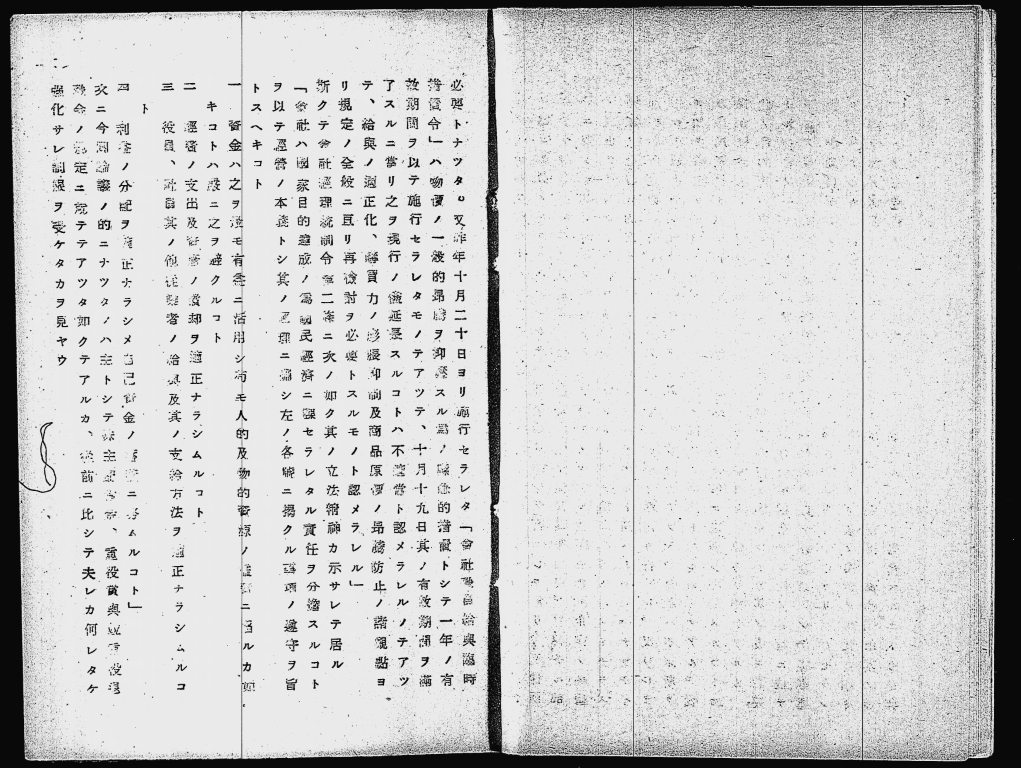 必要トナツタ。又昨年十月二十日ヨリ施行セラレタ「會社職員給與臨時
措置令」ハ物價ノ一般的昂騰ヲ抑壓スル爲ノ應急的措置トシテ一年ノ有
效期間ヲ以テ施行セラレタモノテアツテ、十月十九日其ノ有效期間ヲ滿
了スルニ當リ之ヲ現行ノ儘延長スルコトハ不適當ト認メラレルノテアツ
テ、給與ノ適正化、購買力ノ膨脹抑制及商品原價ノ昂騰防止ノ諸觀點ヨ
リ規定ノ全般ニ亘リ再檢討ヲ必要トスルモノト認メラレル」
斯クテ會社經理統制令第二條ニ次ノ如ク其ノ立法精神カ示サレテ居ル
「會社ハ國家目的達成ノ爲國民經濟ニ課セラレタル責任ヲ分擔スルコト
ヲ以テ經營ノ本義トシ其ノ經理ニ關シ左ノ各號ニ揭クル事項ノ遵守ヲ旨
トスヘキコト
一 資金ハ之ヲ最モ有效ニ活用シ苟モ人的及物的資源ノ濫費ニ渉ルカ如
キコトハ嚴ニ之ヲ避クルコト
二 經費ノ支出及資産ノ償却ヲ適正ナラシムルコト
三 役員、社員其ノ他從業者ノ給與及其ノ支給方法ヲ適正ナラシムルコ
ト
四 利益ノ分配ヲ適正ナラシメ自己資金ノ蓄積ニ努ムルコト」
次ニ今回論議ノ的ニナツタノハ主トシテ株主配當、重役賞與重役退
職金ノ規定ニ就テテアツタ如クテアルカ、從前ニ比シテ夫レカ何レタケ
強化サレ制限ヲ受ケタカヲ見ヤウ